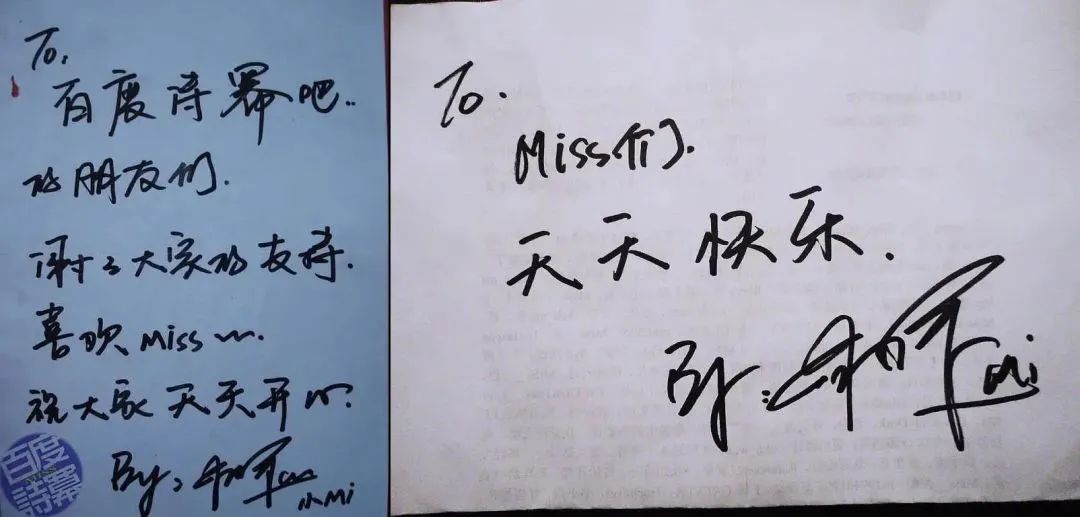 To,
百度诗幂吧..
的朋友们.
谢谢大家的支持.
喜欢Miss~.
祝大家天天开心.
By:
小Mi
百度
詩羃
To.
Miss们.
天天快乐.
By:
Mi